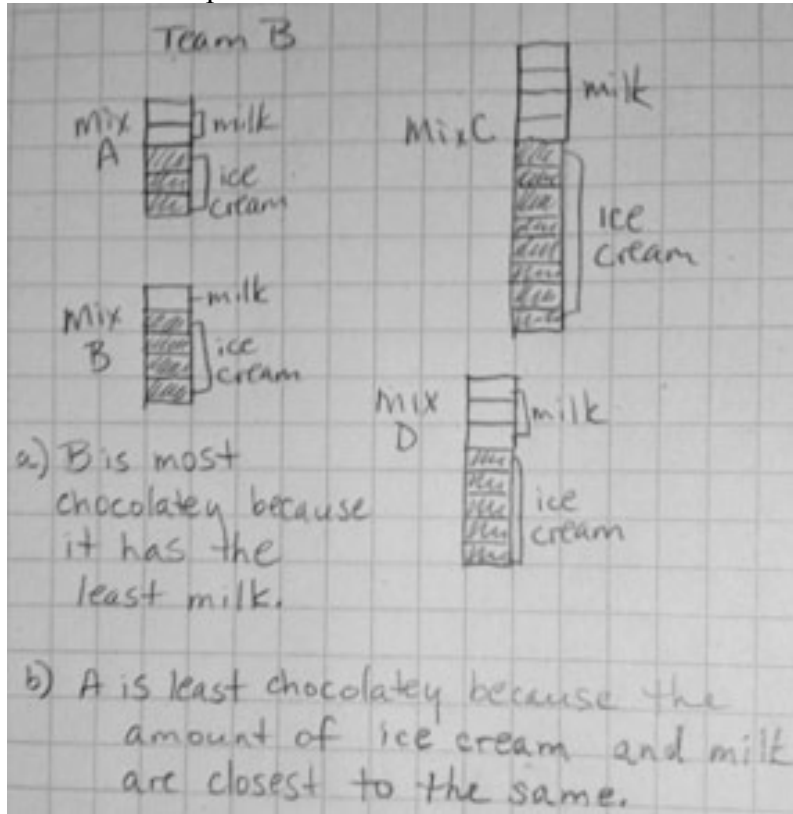 Team B
Mix
A
milk
ice
cream
Mix C
milk
ice
cream
Mix
B
milk
ice
cream
Mix
D
milk
ice
cream
a) B is most
chocolatey because
it has the
least milk.
b) A is least chocolatey because the
amount of ice cream and milk
are closest to the same.